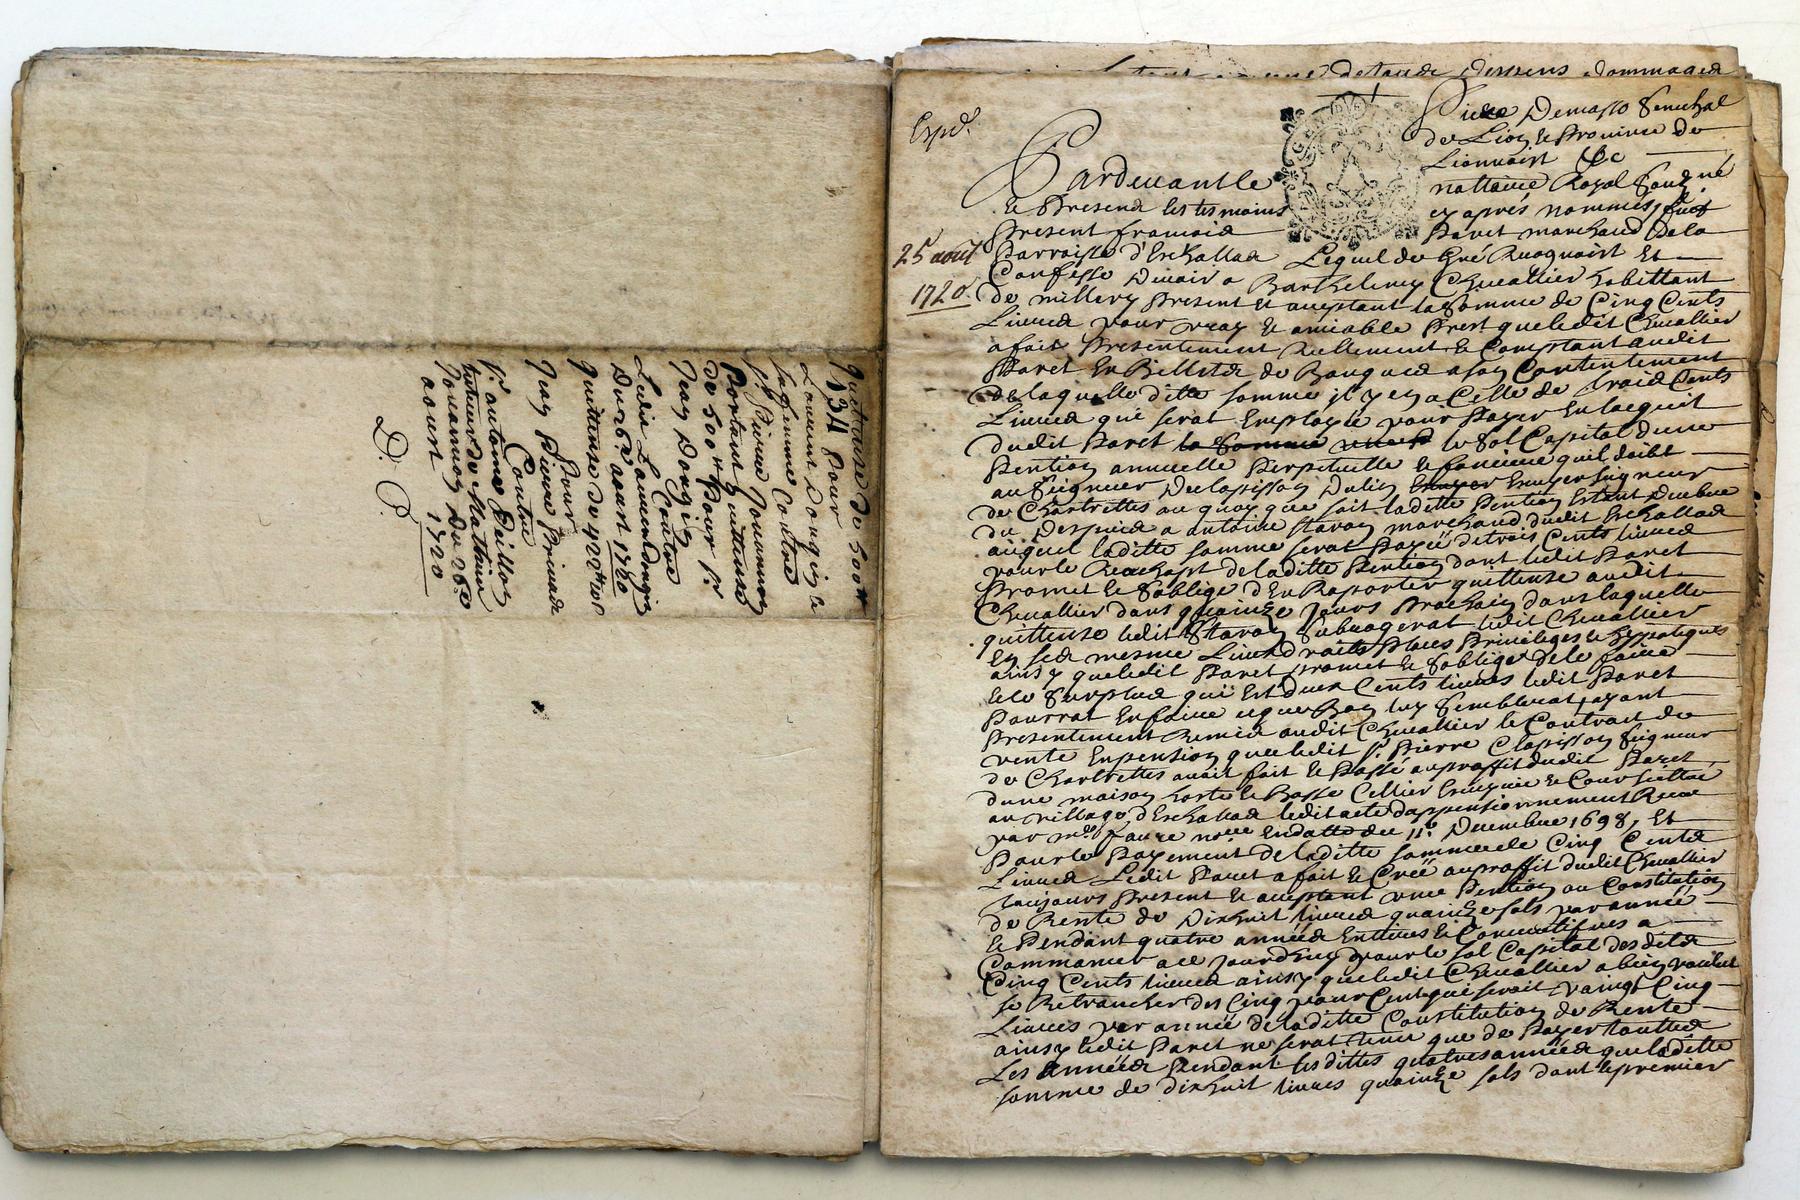 quittance de 500 tt
134 pour
Laurent Dongin le
sa femme Contre
Sr. Pierre Jouannon
Portant quittance
de 500 tt Pour Sr.
Jean Dongin
Contre
Ledit Laurent Dongin
Du 26e aoust 1720
quittance de 422 tt
Pour
Jean Pierre
Contre
Sr. antoine Paillon
tuteur de Mathieu
Jouannon Du 26e
aoust 1720
D. P.
de toude depens dommages
Expd.
25 aout
1720.
Pierre Demasso Senechal
de Lion & Province de
Lionnois &c
Pardevant le notaire Royal Soub.né
& Present les tesmoins cy aprés nommés, fut
Present francois Paret marchand de la
Parroisse d'Eschallas Lequel de Gré Recognoist Et
Confesse Devoir a Barthelemy Chevallier habittant
de millery present & aceptant la Somme de Cinq Cents
Livres pour vray & amiable Prest que ledit Chevallier
a fait Presentement Reellement & Comptant audit
Paret En Billets de Banque a son Contentement
de laquelle ditte somme il y en a Celle de Trois Cents
Livres qui serat Employée pour Payer En lacquit
dudit Paret la Somme le Sol Capital dune
Pention annuelle Perpetuelle & fonciere quil doibt
au Seigneur Declapisson Dulin Escuyer Seigneur
de Chartrettes au quoy que soit laditte Pention Estant Deube
du Depuis a antoine Staron marchand dudit Eschallas
auquel laditte somme serat Payée de trois Cents livres
pour le Reachapt de laditte Pention dont ledit Paret
Promet & Soblige d'En Raporter quittense audit
Chevallier dans quainze Jours Prochain dans laquelle
quittense ledit Staron Subrogerat ledit Chevallier
En ses mesme Lieux droits Places Privileges & hypoteques
ainsy que ledit Paret promet & Soblige de le faire
& le Surplus qui Est deux Cents livres ledit Paret
Pourrat En faire ce que Bon luy Semblerat, ayant
Presentement Remis audit Chevallier le Contract de
vente En pension que ledit Sr. Pierre Clapisson Seigneur
de Chartrettes avait fait & Passé au proffit dudit Paret
dune maison haute & Basse Cellier Escuyrie & Cour Scittué
au village d'Eschallas ledit acte dappensionnement Receu
par me. faure nore. En datte du 11e. Decembre 1698, Et
Pour le Payement de laditte somme de Cinq Cents
Livres Ledit Paret a fait & Créé au proffit dudit Chevallier
toujours Present & aceptant une Pention ou Constitution
de Rente de Dixhuit livres quainze sols par année
& Pendant quatre années Entieres & Consecutifves a
Commancer a ce jourdhuy pour le sol Capital desdits
Cinq Cents livres ainsy que ledit Chevallier a bien voullut
se Retrancher des Cinq pour Cent qui seroit vaingt Cinq
Livres par année de laditte Constitution de Rente
ainsy ledit Paret ne serat tenu que de Payer touttes
Les années Pendant lesdittes quatres années que laditte
somme de dixhuit livres quainze sols dont le premier